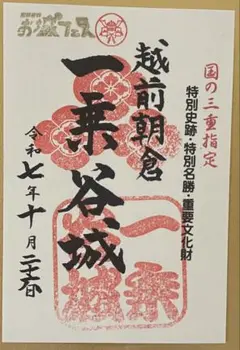 お城フェス
国の三重指定
特別史跡・特別名勝・重要文化財
越前朝倉
一乗谷城
令和七年十月二十六日
一乗谷城